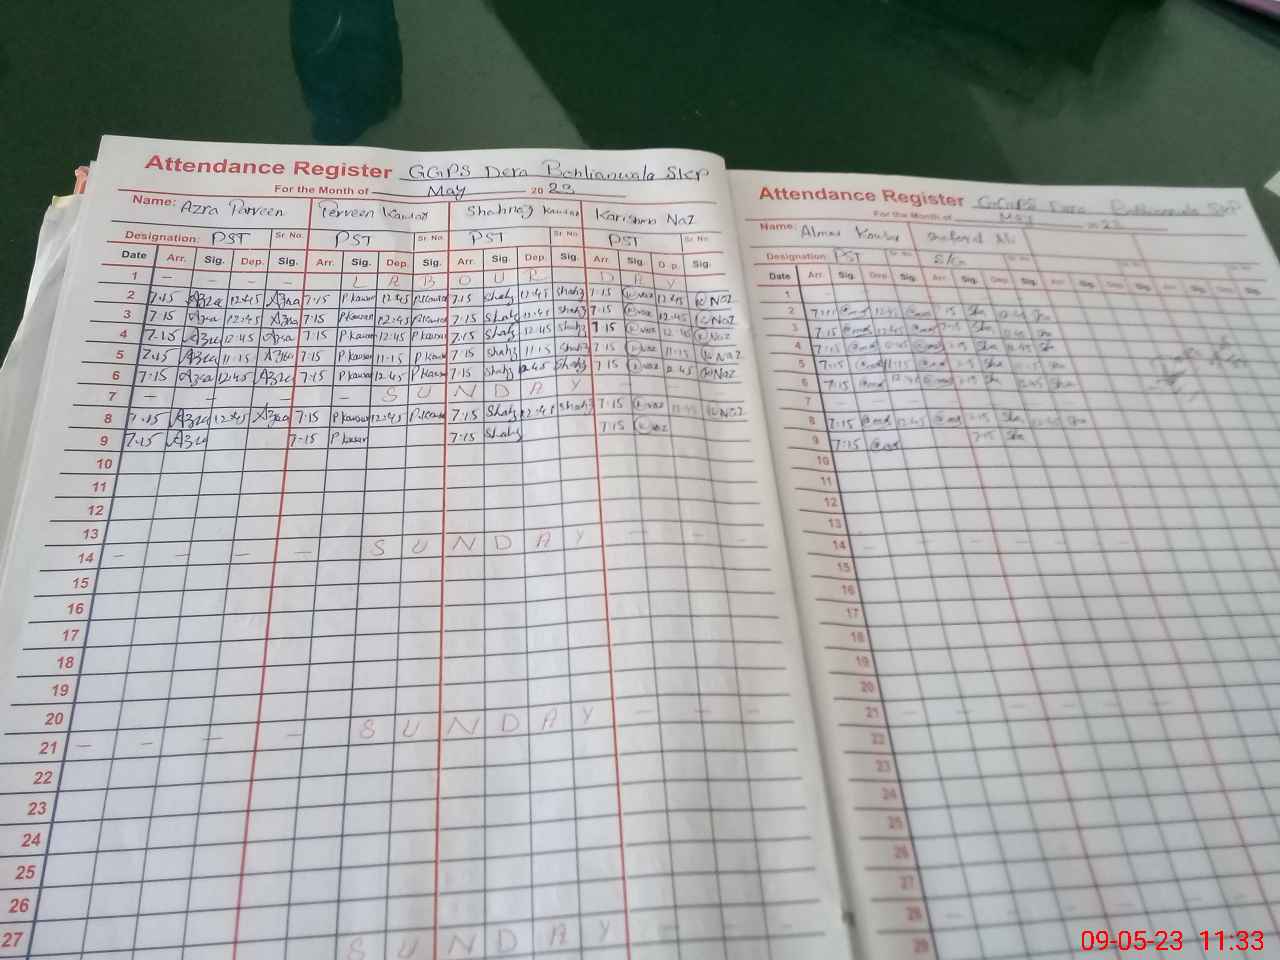 Attendance Register GGPS Dera Bohlianwala SKP
For the Month of May 2023
Name: Azra Parveen Perveen Kausar Shahnaz Kausar Karishma Naz
Designation: PST Sr No. PST Sr No. PST Sr No. PST Sr No.
Date Arr. Sig. Dep. Sig. Arr. Sig. Dep. Sig. Arr. Sig. Dep. Sig. Arr. Sig. Dep. Sig.
1 — — — — L A B O U R D A Y
2 7:15 Azra 12:45 Azra 7:15 P.kausar 12:45 P.kausar 7:15 Shahz 12:45 Shahz 7:15 K.Naz 12:45 K.Naz
3 7:15 Azra 12:45 Azra 7:15 P.kausar 12:45 P.kausar 7:15 Shahz 12:45 Shahz 7:15 K.Naz 12:45 K.Naz
4 7:15 Azra 12:45 Azra 7:15 P.kausar 12:45 P.kausar 7:15 Shahz 12:45 Shahz 7:15 K.Naz 12:45 K.Naz
5 7:15 Azra 11:15 Azra 7:15 P.kausar 11:15 P.kausar 7:15 Shahz 11:15 Shahz 7:15 K.Naz 11:15 K.Naz
6 7:15 Azra 12:45 Azra 7:15 P.kausar 12:45 P.kausar 7:15 Shahz 12:45 Shahz 7:15 K.Naz 12:45 K.Naz
7 — — — — S U N D A Y — — —
8 7:15 Azra 12:45 Azra 7:15 P.kausar 12:45 P.kausar 7:15 Shahz 12:45 Shahz 7:15 K.Naz 12:45 K.Naz
9 7:15 Azra 7:15 P.kausar 7:15 Shahz 7:15 K.Naz
10
11
12
13
14 — — — — S U N D A Y — — —
15
16
17
18
19
20
21 — — — — S U N D A Y — — —
22
23
24
25
26
27 S U N D A Y
Attendance Register GGPS Dera Bohlianwala SKP
For the Month of May 2023
Name: Almas Kousar
Designation: PST
Date Arr. Sig. Dep. Sig. Arr. Sig. Dep. Sig. Arr. Sig. Dep. Sig.
1
2 7:15 12:45 7:15 12:45
3 7:15 12:45 7:15 12:45
4 7:15 12:45 7:15 12:45
5 7:15 11:15 7:15
6 7:15 12:45 7:15 12:45
7 — — —
8 7:15 12:45 7:15 12:45
9 7:15 7:15
10
11
12
13
14
15
16
17
18
19
20
21
22
23
24
25
26
27
28
29
09-05-23 11:33